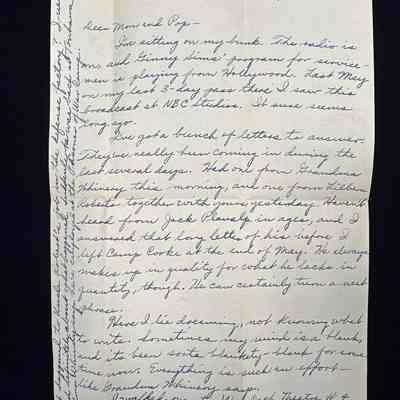 Dear Mom and Pop—
I'm sitting on my bunk. The radio is
on, and Ginny Sims' program for service-
men is playing from Hollywood. Last May
on my last 3-day pass there I saw this
broadcast at NBC Studios. It sure seems
long ago.
I've got a bunch of letters to answer.
They've really been coming in during the
last several days. Had one from Grandma
Whinery this morning, and one from
Roberts together with yours yesterday. Haven't
heard from Jack in ages, and I
answered that long letter of his before I
left Camp Cooke at the end of May. He always
makes up in quality for what he lacks in
quantity, though. He can certainly turn a neat
phrase.
Here I lie dreaming, not knowing what
to write. Sometimes my mind is a blank,
and its been sorta blankety-blank for some
time now. Everything is such an effort—
like Grandma Whinery says.